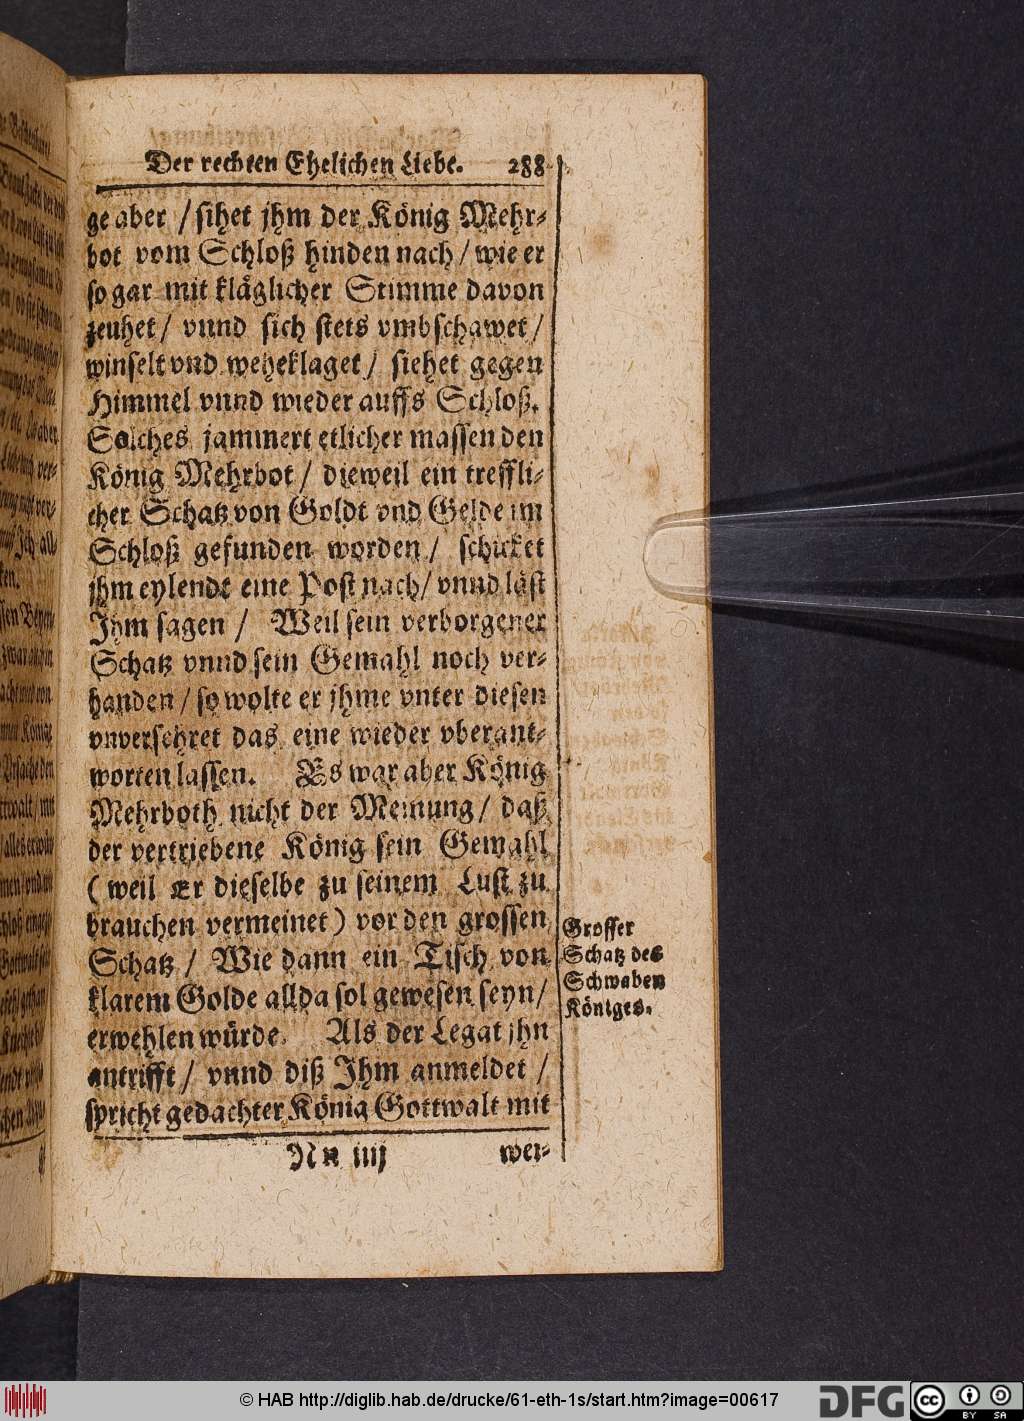 Der rechten Ehelichen Liebe. 288
ge aber / sihet jhm der König Mehr-
bot vom Schloß hinden nach / wie er
so gar mit kläglicher Stimme davon
zeuhet / vnnd sich stets vmbschawet /
winselt vnd weheklaget / siehet gegen
Himmel vnnd wieder auffs Schloß.
Solches jammert etlicher massen den
König Mehrbot / dieweil ein treffli-
cher Schatz von Goldt vnd Gelde im
Schloß gefunden worden / schicket
jhm eylendt eine Post nach / vnnd läst
Ihm sagen / Weil sein verborgener
Schatz vnnd sein Gemahl noch ver-
handen / so wolte er jhme vnter diesen
vnversehret das eine wieder vberant-
worten lassen. Es war aber König
Mehrboth nicht der Meinung / daß
der vertriebene König sein Gemahl
(weil Er dieselbe zu seinem Lust zu
brauchen vermeinet) vor den grossen
Schatz / Wie dann ein Tisch von
klarem Golde allda sol gewesen seyn /
erwehlen würde. Als der Legat jhn
antrifft / vnnd diß Ihm anmeldet /
spricht gedachter König Gottwalt mit
Grosser
Schatz des
Schwaben
Königes.
Nn iiij wei-
© HAB http://diglib.hab.de/drucke/61-eth-1s/start.htm?image=00617
DFG
CC BY SA